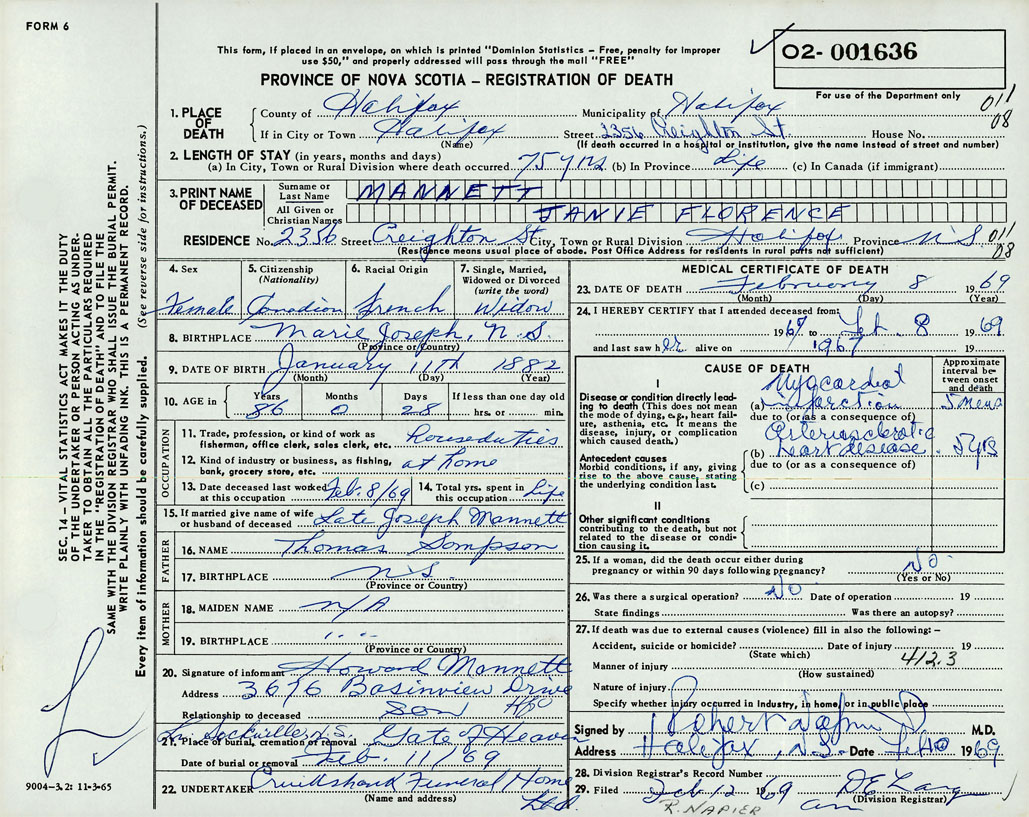 FORM 6
This form, if placed in an envelope, on which is printed "Dominion Statistics – Free, penalty for improper
use $50," and properly addressed will pass through the mail "FREE"
O2- 001636
PROVINCE OF NOVA SCOTIA – REGISTRATION OF DEATH
For use of the Department only
011
08
1. PLACE OF DEATH
County of Halifax Municipality of Halifax
If in City or Town Halifax Street 2356 Creighton St House No.
(Name) (If death occurred in a hospital or institution, give the name instead of street and number)
2. LENGTH OF STAY (in years, months and days)
(a) In City, Town or Rural Division where death occurred 75 yrs (b) In Province Life (c) In Canada (if immigrant)
3. PRINT NAME OF DECEASED
Surname or Last Name MANNETT
All Given or Christian Names JANIE FLORENCE
RESIDENCE No. 2356 Street Creighton St City, Town or Rural Division Halifax Province N.S 011
08
(Residence means usual place of abode. Post Office Address for residents in rural parts not sufficient)
4. Sex
Female
5. Citizenship
(Nationality)
Canadian
6. Racial Origin
French
7. Single, Married,
Widowed or Divorced
(write the word)
Widow
8. BIRTHPLACE Marie Joseph, N.S.
(Province or Country)
9. DATE OF BIRTH January 11th 1882
(Month) (Day) (Year)
10. AGE in
Years Months Days If less than one day old
86 0 28 hrs. or min.
OCCUPATION
11. Trade, profession, or kind of work as
fisherman, office clerk, sales clerk, etc. Houseduties
12. Kind of industry or business, as fishing,
bank, grocery store, etc. at home
13. Date deceased last worked
at this occupation Feb. 8/69
14. Total yrs. spent in
this occupation Life
15. If married give name of wife
or husband of deceased Late Joseph Mannett
FATHER
16. NAME Thomas Sompson
17. BIRTHPLACE N.S.
(Province or Country)
MOTHER
18. MAIDEN NAME N/A
19. BIRTHPLACE " "
(Province or Country)
20. Signature of informant Howard Mannett
Address 3676 Basinview Drive
Relationship to deceased Son
21. Place of burial, cremation or removal Gate of Heaven
Sackville, N.S.
Date of burial or removal Feb. 11/69
22. UNDERTAKER Cruikshank Funeral Home
(Name and address) Ltd.
MEDICAL CERTIFICATE OF DEATH
23. DATE OF DEATH February 8 1969
(Month) (Day) (Year)
24. I HEREBY CERTIFY that I attended deceased from
1967 to Feb. 8 1969
and last saw her alive on 1967 19
CAUSE OF DEATH
Approximate
interval be-
tween onset
and death
I
Disease or condition directly lead-
ing to death (This does not mean
the mode of dying, e.g., heart fail-
ure, asthenia, etc. It means the
disease, injury, or complication
which caused death.)
(a) Myocardial
infarction
due to (or as a consequence of)
Antecedent causes
Morbid conditions, if any, giving
rise to the above cause, stating
the underlying condition last.
Arteriosclerotic
(b) heart disease 5 yrs
due to (or as a consequence of)
(c)
II
Other significant conditions
contributing to the death, but not
related to the disease or condi-
tion causing it.
25. If a woman, did the death occur either during
pregnancy or within 90 days following pregnancy? No
(Yes or No)
26. Was there a surgical operation? No Date of operation 19
State findings Was there an autopsy?
27. If death was due to external causes (violence) fill in also the following: –
Accident, suicide or homicide? Date of injury 19
(State which)
412.3
Manner of injury
(How sustained)
Nature of injury
Specify whether injury occurred in Industry, in home, or in public place
Signed by Robert M.D.
Address Halifax, N.S. Date Feb 10 1969
28. Division Registrar's Record Number
29. Filed Feb 12 1969 D E Lang
(Division Registrar)
R. NAPIER
SEC. 14 – VITAL STATISTICS ACT MAKES IT THE DUTY
OF THE UNDERTAKER OR PERSON ACTING AS UNDER-
TAKER TO OBTAIN ALL THE PARTICULARS REQUIRED
IN THE "REGISTRATION OF DEATH" AND TO FILE THE
SAME WITH THE DIVISION REGISTRAR WHO SHALL ISSUE THE BURIAL PERMIT.
WRITE PLAINLY WITH UNFADING INK. THIS IS A PERMANENT RECORD.
Every item of information should be carefully supplied. (See reverse side for instructions.)
9004-3.2: 11-3-65